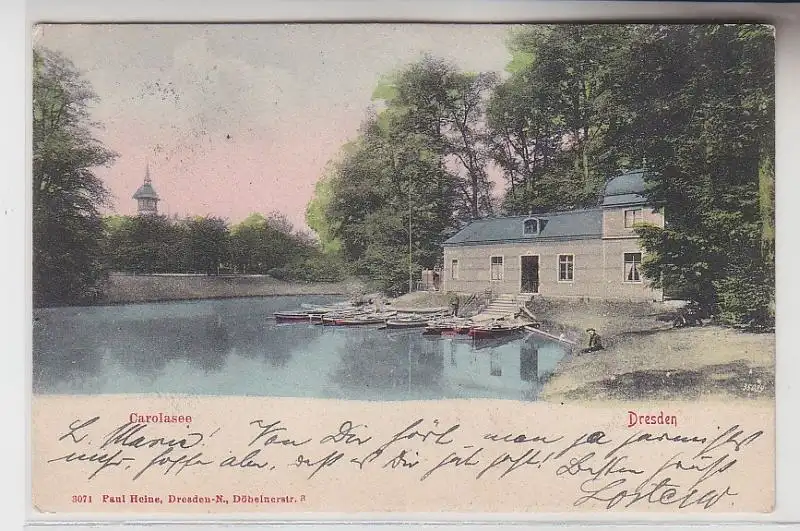 35619
Carolasee
Dresden
L. Marie! Von Dir hört man ja garnichts
mehr, hoffe aber, daß es Dir gut geht! Besten Gruß
3071 Paul Heine, Dresden-N., Döbelnerstr. 8